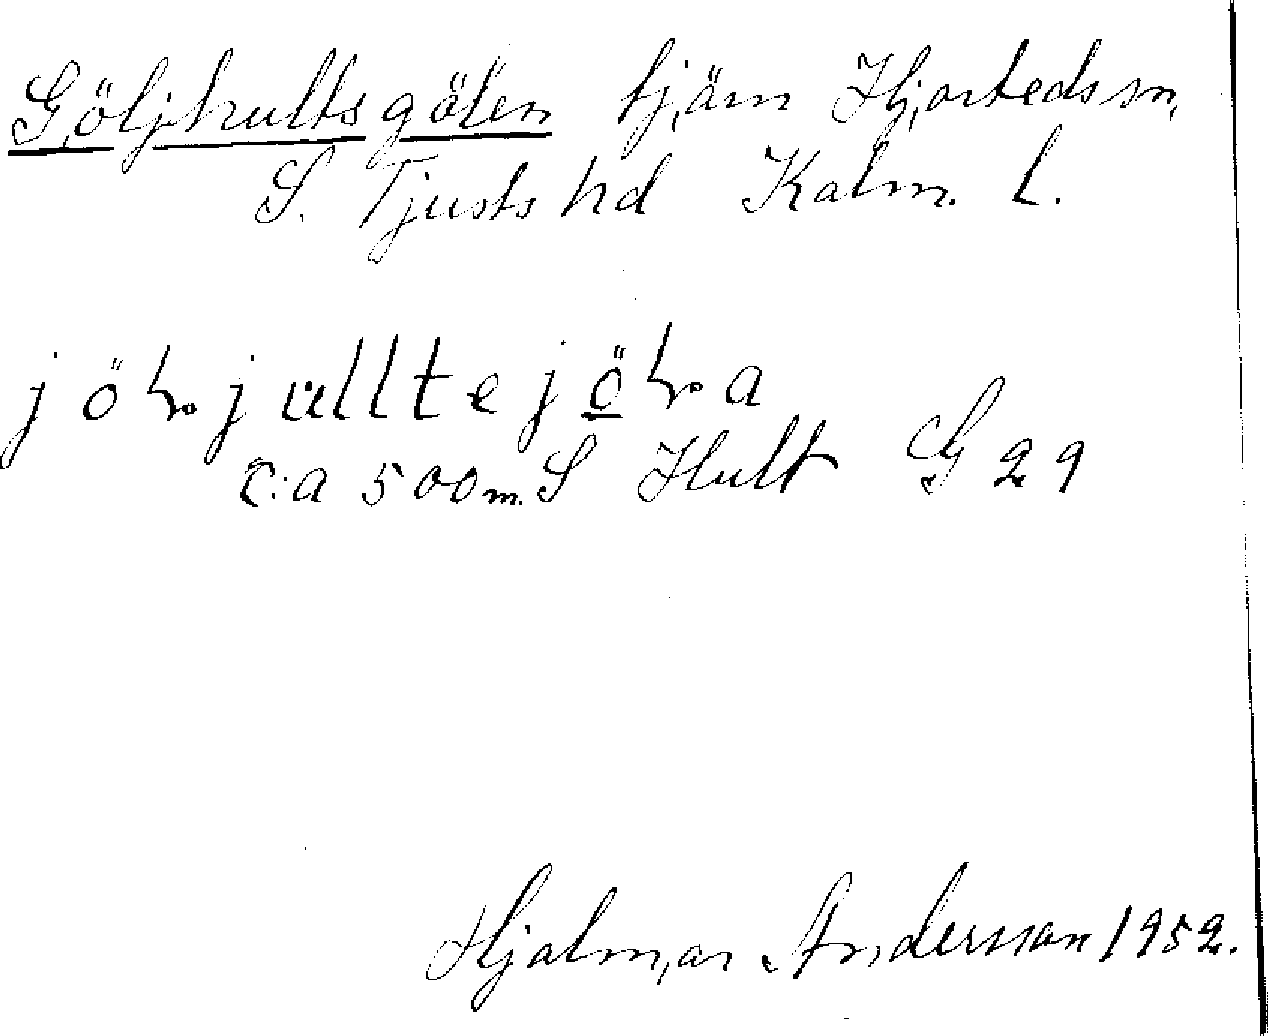 Göljhultsgölen tjärn Hjorteds sn,
S. Tjusts hd Kalm. L.
c:a 500 m. S Hult G 29
Hjalmar Andersson 1952.